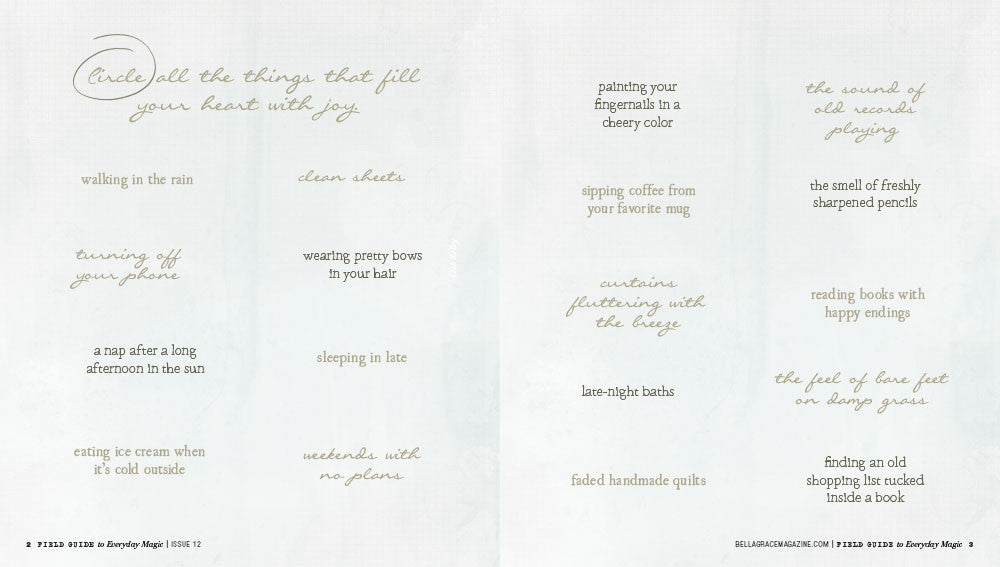 Circle all the things that fill
your heart with joy.
walking in the rain
clean sheets
turning off
your phone
wearing pretty bows
in your hair
a nap after a long
afternoon in the sun
sleeping in late
eating ice cream when
it's cold outside
weekends with
no plans
2 FIELD GUIDE to Everyday Magic | ISSUE 12
painting your
fingernails in a
cheery color
the sound of
old records
playing
sipping coffee from
your favorite mug
the smell of freshly
sharpened pencils
curtains
fluttering with
the breeze
reading books with
happy endings
late-night baths
the feel of bare feet
on damp grass
faded handmade quilts
finding an old
shopping list tucked
inside a book
BELLAGRACEMAGAZINE.COM | FIELD GUIDE to Everyday Magic 3